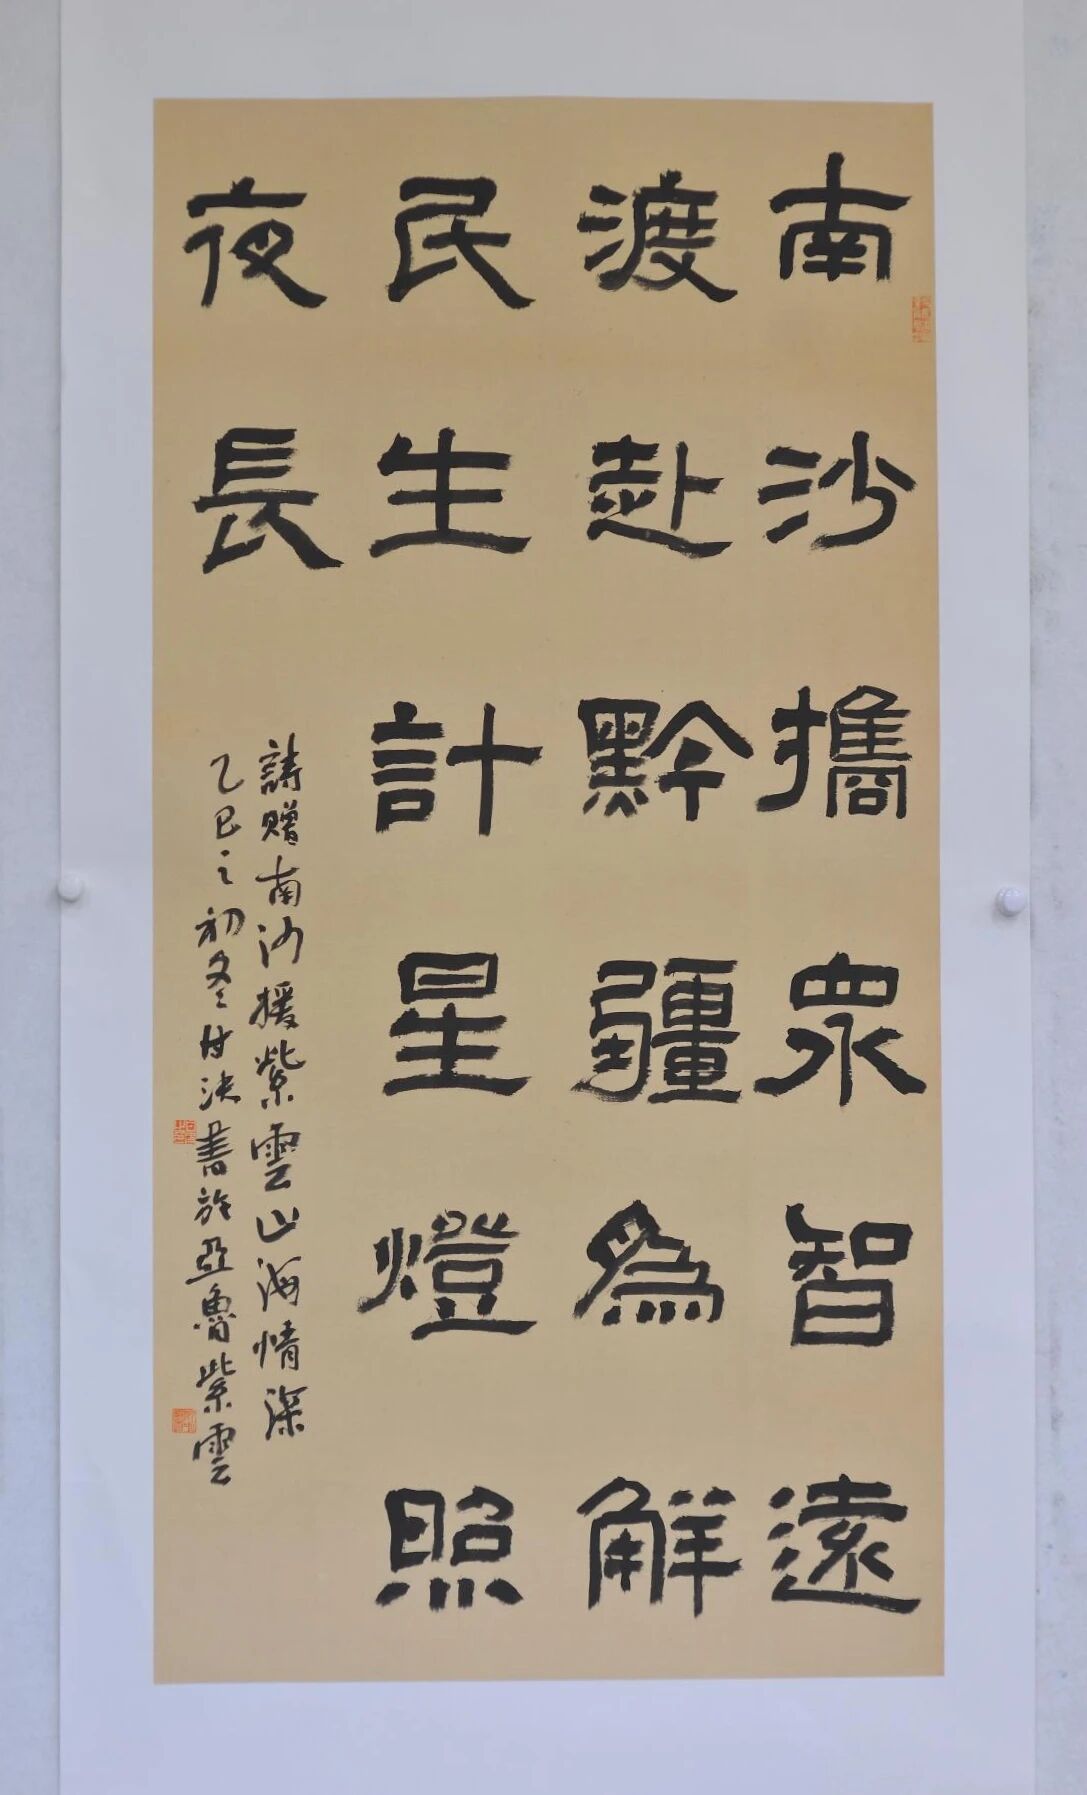 南沙攜眾智遠
渡赴黔疆為解
民生計星燈照
夜長
詩贈南沙援紫雲山海情深
乙巳之初冬付決書於亞魯紫雲